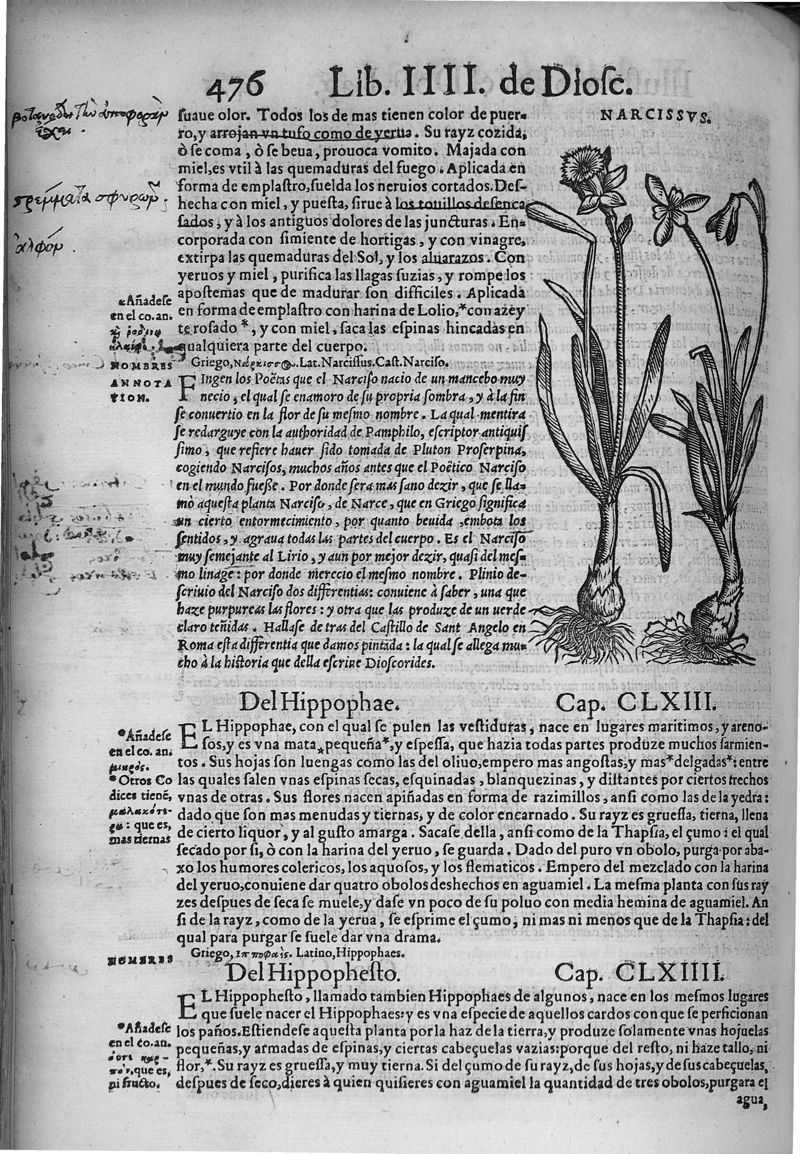 476 Lib. IIII. de Diosc.
NARCISSVS.
suaue olor. Todos los de mas tienen color de puer-
ro, y arrojan vn tufo como de yerua. Su rayz cozida,
ò se coma, ò se beua, prouoca vomito. Majada con
miel, es vtil à las quemaduras del fuego. Aplicada en
forma de emplastro, suelda los neruios cortados. Des-
hecha con miel, y puesta, sirue à los touillos desenca
sados, y à los antiguos dolores de las juncturas. En-
corporada con simiente de hortigas, y con vinagre,
extirpa las quemaduras del Sol, y los aluarazos. Con
yeruos y miel, purifica las llagas suzias, y rompe los
apostemas que de madurar son difficiles. Aplicada
en forma de emplastro con harina de Lolio,*con azey
te rosado*, y con miel, saca las espinas hincadas en
qualquiera parte del cuerpo.
*Añadese
en el co. an.
NOMBRES
Griego, Νάρκισσος. Lat. Narcissus. Cast. Narciso.
ANNOTA
TION.
FIngen los Poëtas que el Narciso nacio de un mancebo muy
necio, el qual se enamoro de su propria sombra, y à la fin
se conuertio en la flor de su mesmo nombre. La qual mentira
se redarguye con la authoridad de Pamphilo, escriptor antiquis
simo, que refiere hauer sido tomada de Pluton Proserpina,
cogiendo Narcisos, muchos años antes que el Poëtico Narciso
en el mundo fuesse. Por donde sera mas sano dezir, que se lla-
mò aquesta planta Narciso, de Narce, que en Griego significa
un cierto entormecimiento, por quanto beuida, embota los
sentidos, y agraua todas las partes del cuerpo. Es el Narciso
muy semejante al Lirio, y aun por mejor dezir, quasi del mes-
mo linage: por donde merecio el mesmo nombre. Plinio de-
scriuio del Narciso dos differentias: conuiene à saber, una que
haze purpureas las flores: y otra que las produze de un uerde
claro teñidas. Hallase de tras del Castillo de Sant Angelo en
Roma esta differentia que damos pintada: la qual se allega mu-
cho à la historia que della escriue Dioscorides.
Del Hippophae. Cap. CLXIII.
EL Hippophae, con el qual se pulen las vestiduras, nace en lugares maritimos, y areno-
sos, y es vna mata*pequeña*, y espessa, que hazia todas partes produze muchos sarmien-
tos. Sus hojas son luengas como las del oliuo, empero mas angostas, y mas*delgadas*: entre
las quales salen vnas espinas secas, esquinadas, blanquezinas, y distantes por ciertos trechos
vnas de otras. Sus flores nacen apiñadas en forma de razimillos, ansi como las de la yedra:
dado que son mas menudas y tiernas, y de color encarnado. Su rayz es gruessa, tierna, llena
de cierto liquor, y al gusto amarga. Sacase della, ansi como de la Thapsia, el çumo: el qual
secado por si, ò con la harina del yeruo, se guarda. Dado del puro vn obolo, purga por aba-
xo los humores colericos, los aquosos, y los flematicos. Empero del mezclado con la harina
del yeruo, conuiene dar quatro obolos deshechos en aguamiel. La mesma planta con sus ray
zes despues de seca se muele, y dase vn poco de su poluo con media hemina de aguamiel. An
si de la rayz, como de la yerua, se esprime el çumo, ni mas ni menos que de la Thapsia: del
qual para purgar se suele dar vna drama.
*Añadese
en el co. an.
μικρὸς.
*Otros Co
dices tienẽ,
: que es,
mas tiernas
NOMBRES
Griego, Ἱπποφαὲς. Latino, Hippophaes.
Del Hippophesto. Cap. CLXIIII.
EL Hippophesto, llamado tambien Hippophaes de algunos, nace en los mesmos lugares
que suele nacer el Hippophaes: y es vna especie de aquellos cardos con que se perficionan
los paños. Estiendese aquesta planta por la haz de la tierra, y produze solamente vnas hojuelas
pequeñas, y armadas de espinas, y ciertas cabeçuelas vazias: porque del resto, ni haze tallo, ni
flor,*. Su rayz es gruessa, y muy tierna. Si del çumo de su rayz, de sus hojas, y de sus cabeçuelas,
despues de seco, dieres à quien quisieres con aguamiel la quantidad de tres obolos, purgara el
agua,
*Añadese
en el co. an.
que es,
ni fructo.